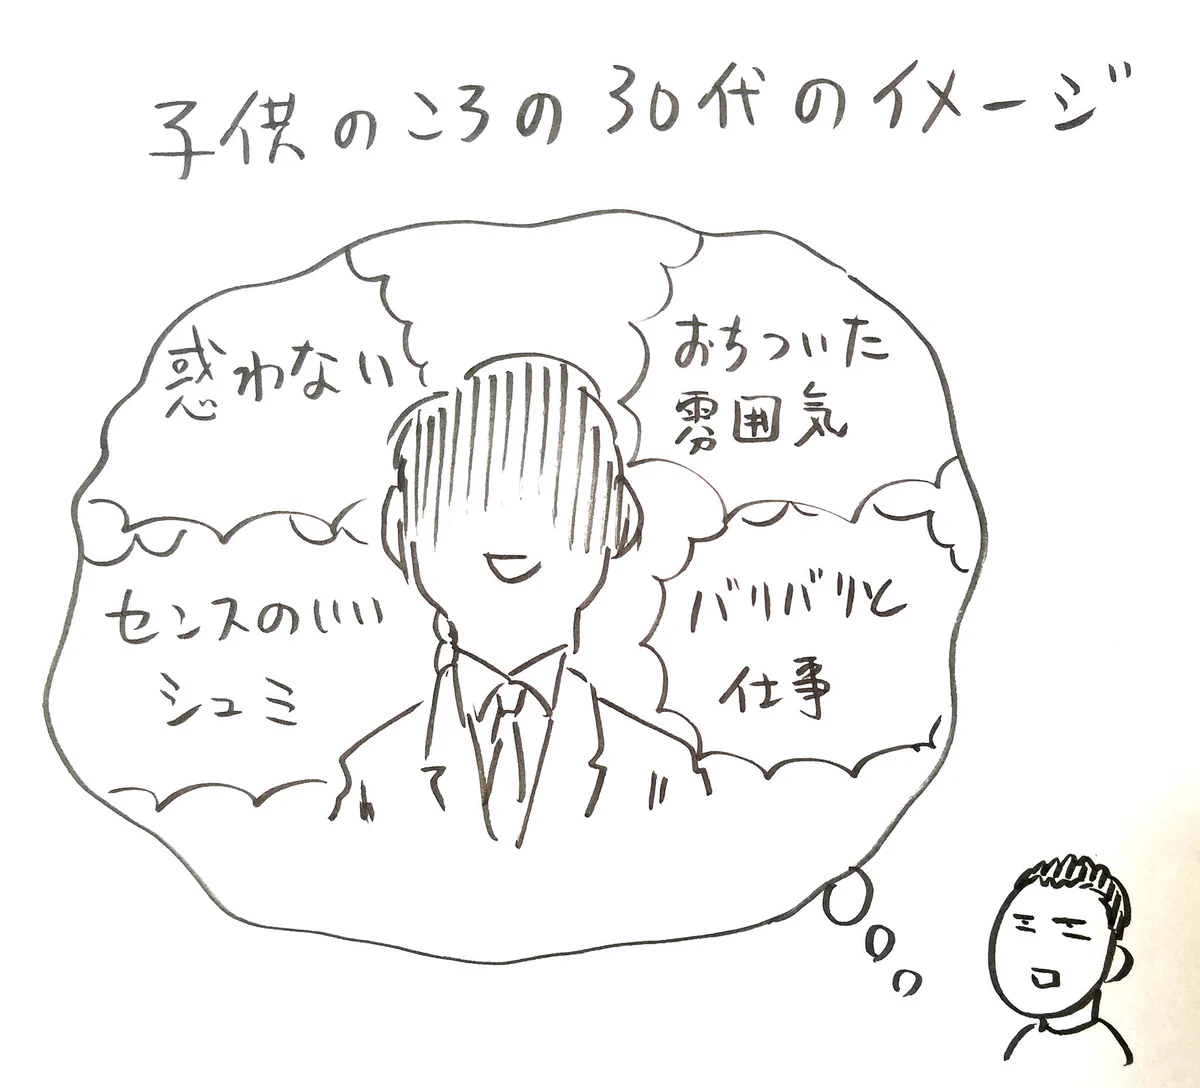 子供のころの30代のイメージ
惑わない
おちついた
雰囲気
センスのいい
シュミ
バリバリと
仕事